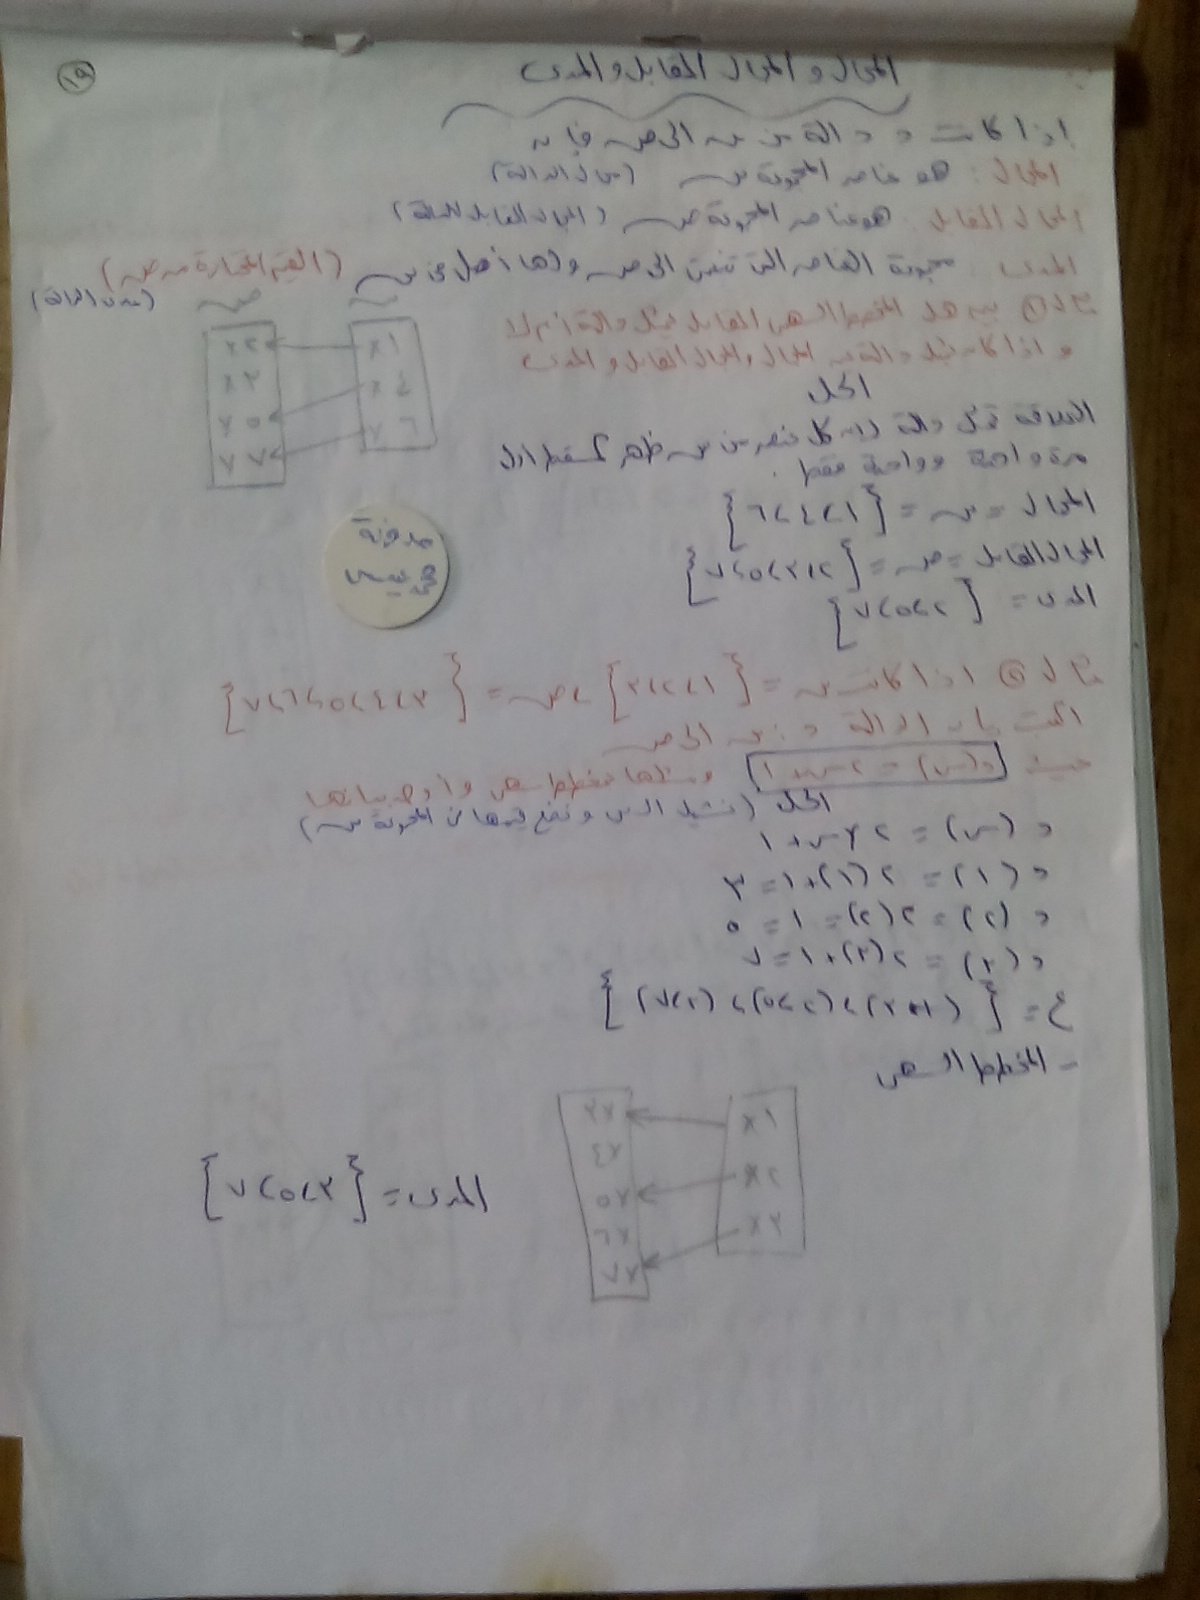 ١٩
المجال و المجال المقابل و المدى
إذا كانت د دالة من س إلى ص فإن
المجال : هو عناصر المجموعة س (مجال الدالة)
المجال المقابل : هو عناصر المجموعة ص (المجال المقابل للدالة)
المدى : مجموعة العناصر التي تنتمي إلى ص ولها أصل في س (القيم المختارة من ص)
(مدى الدالة)
س ص
مثال ① بين هل المخطط السهمي المقابل يمثل دالة أم لا
و إذا كان يمثل دالة بين المجال والمجال المقابل و المدى
١× ٢×
٤× ٣×
٦× ٥×
٧×
الحل
العلاقة تمثل دالة لأن كل عنصر من س ظهر كمسقط أول
مرة واحدة وواحدة فقط .
المجال = س = {١، ٤، ٦}
المجال المقابل = ص = {٢، ٣، ٥، ٧}
المدى = {٢، ٥، ٧}
مدونة
مثال ② إذا كانت س = {١، ٢، ٣} ، ص = {٣، ٤، ٥، ٦، ٧}
اكتب بيان الدالة د : س إلى ص
حيث د(س) = ٢س + ١ ومثلها بمخطط سهمي وأوجد
الحل (نشيل الس و نضع قيمها من المجموعة س)
د (س) = ٢ × س + ١
د (١) = ٢(١) + ١ = ٣
د (٢) = ٢(٢) = ١ = ٥
د (٣) = ٢(٣) + ١ = ٧
ع = {(١، ٣)، (٢، ٥)، (٣، ٧)}
- المخطط السهمي
١× ٣×
٢× ٤×
٣× ٥×
٦×
٧×
المدى = {٣، ٥، ٧}